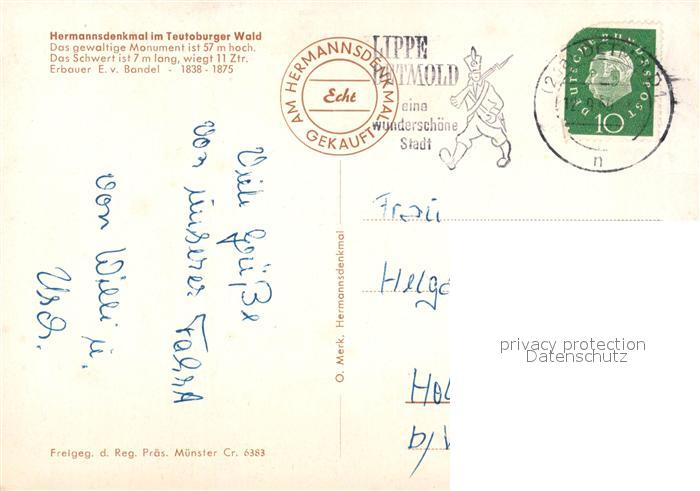 Hermannsdenkmal im Teutoburger Wald
Das gewaltige Monument ist 57 m hoch.
Das Schwert ist 7 m lang, wiegt 11 Ztr.
Erbauer E. v. Bandel - 1838 - 1875
AM HERMANNSDENKMAL
Echt
GEKAUFT
LIPPE
DETMOLD
eine
wunderschöne
Stadt
DEUTSCHE BUNDESPOST
10
n
Viele Grüße
von unserer Fahrt
von Willi u.
O. Merk. Hermannsdenkmal
Frau
Helga
privacy protection
Datenschutz
Freigeg. d. Reg. Präs. Münster Cr. 6383